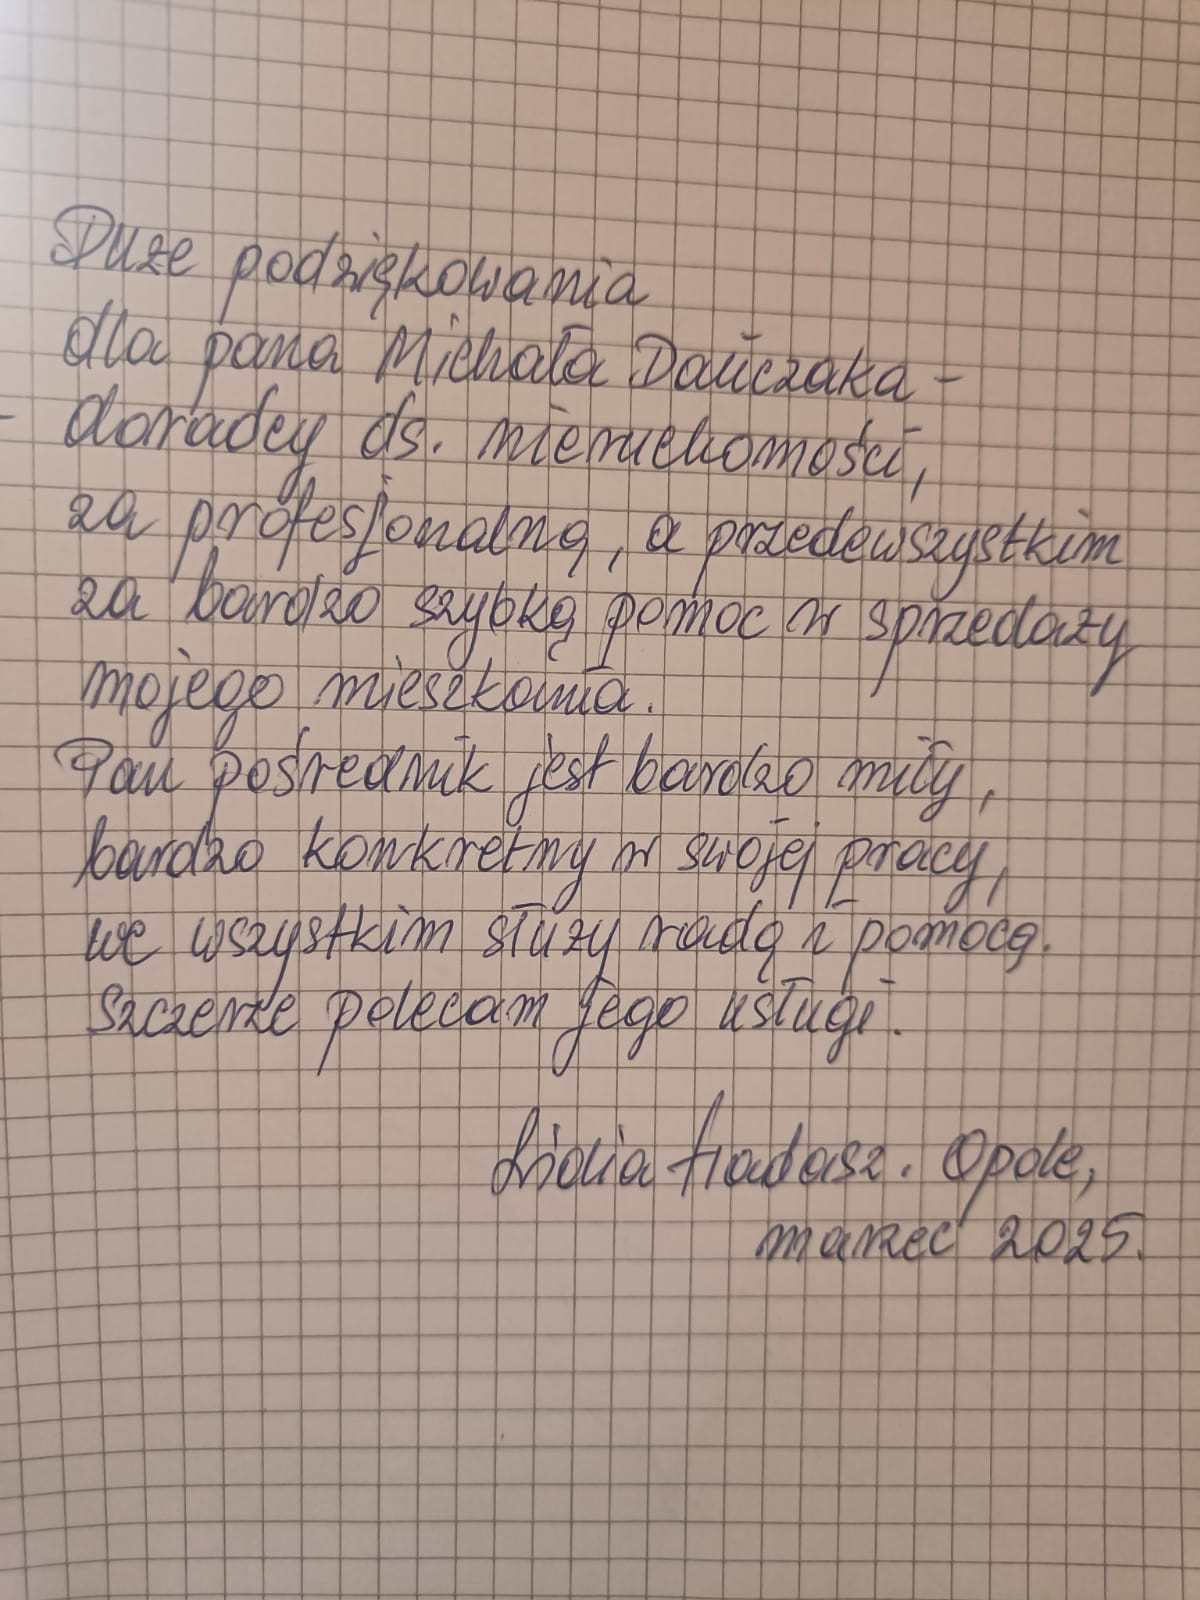 Duże podziękowania
dla pana Michała Dańczaka -
- doradcy ds. nieruchomości,
za profesjonalną, a przedewszystkim
za bardzo szybką pomoc w sprzedaży
mojego mieszkania.
Pan pośrednik jest bardzo miły,
bardzo konkretny w swojej pracy,
we wszystkim służy radą i pomocą.
Szczerze polecam jego usługi.
Lidia Opole,
marzec 2025.